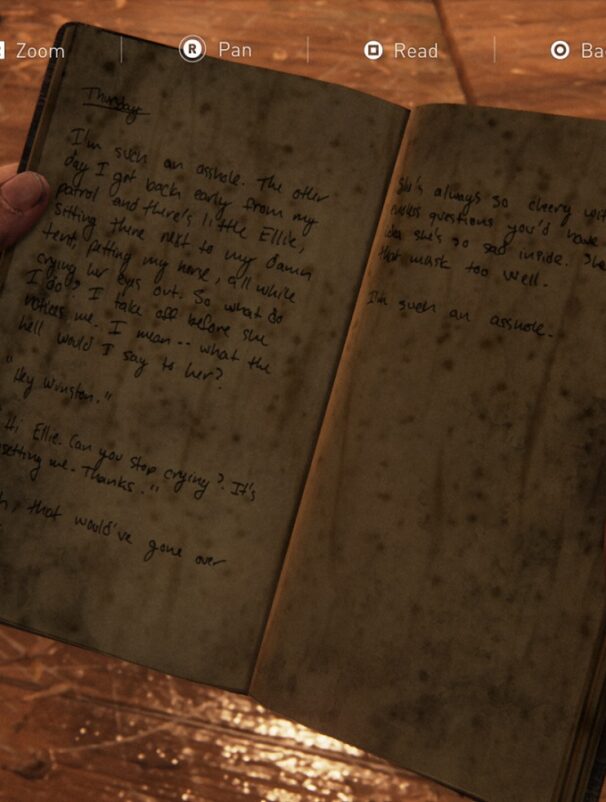 Zoom
R Pan
Read
Ba
Thursday
I'm such an asshole. The other
day I get back early from my
patrol and there's little Ellie,
sitting there next to my damn
tent, petting my horse, all while
crying her eyes out. So what do
I do? I take off before she
notices me. I mean -- what the
hell would I say to her?
"Hey Winston."
Hi Ellie. Can you stop crying? It's
setting me. Thanks."
h, that would've gone over
She's always so cheery wit
endless questions you'd have
idea she's so sad inside. She
that mask too well.
I'm such an asshole.